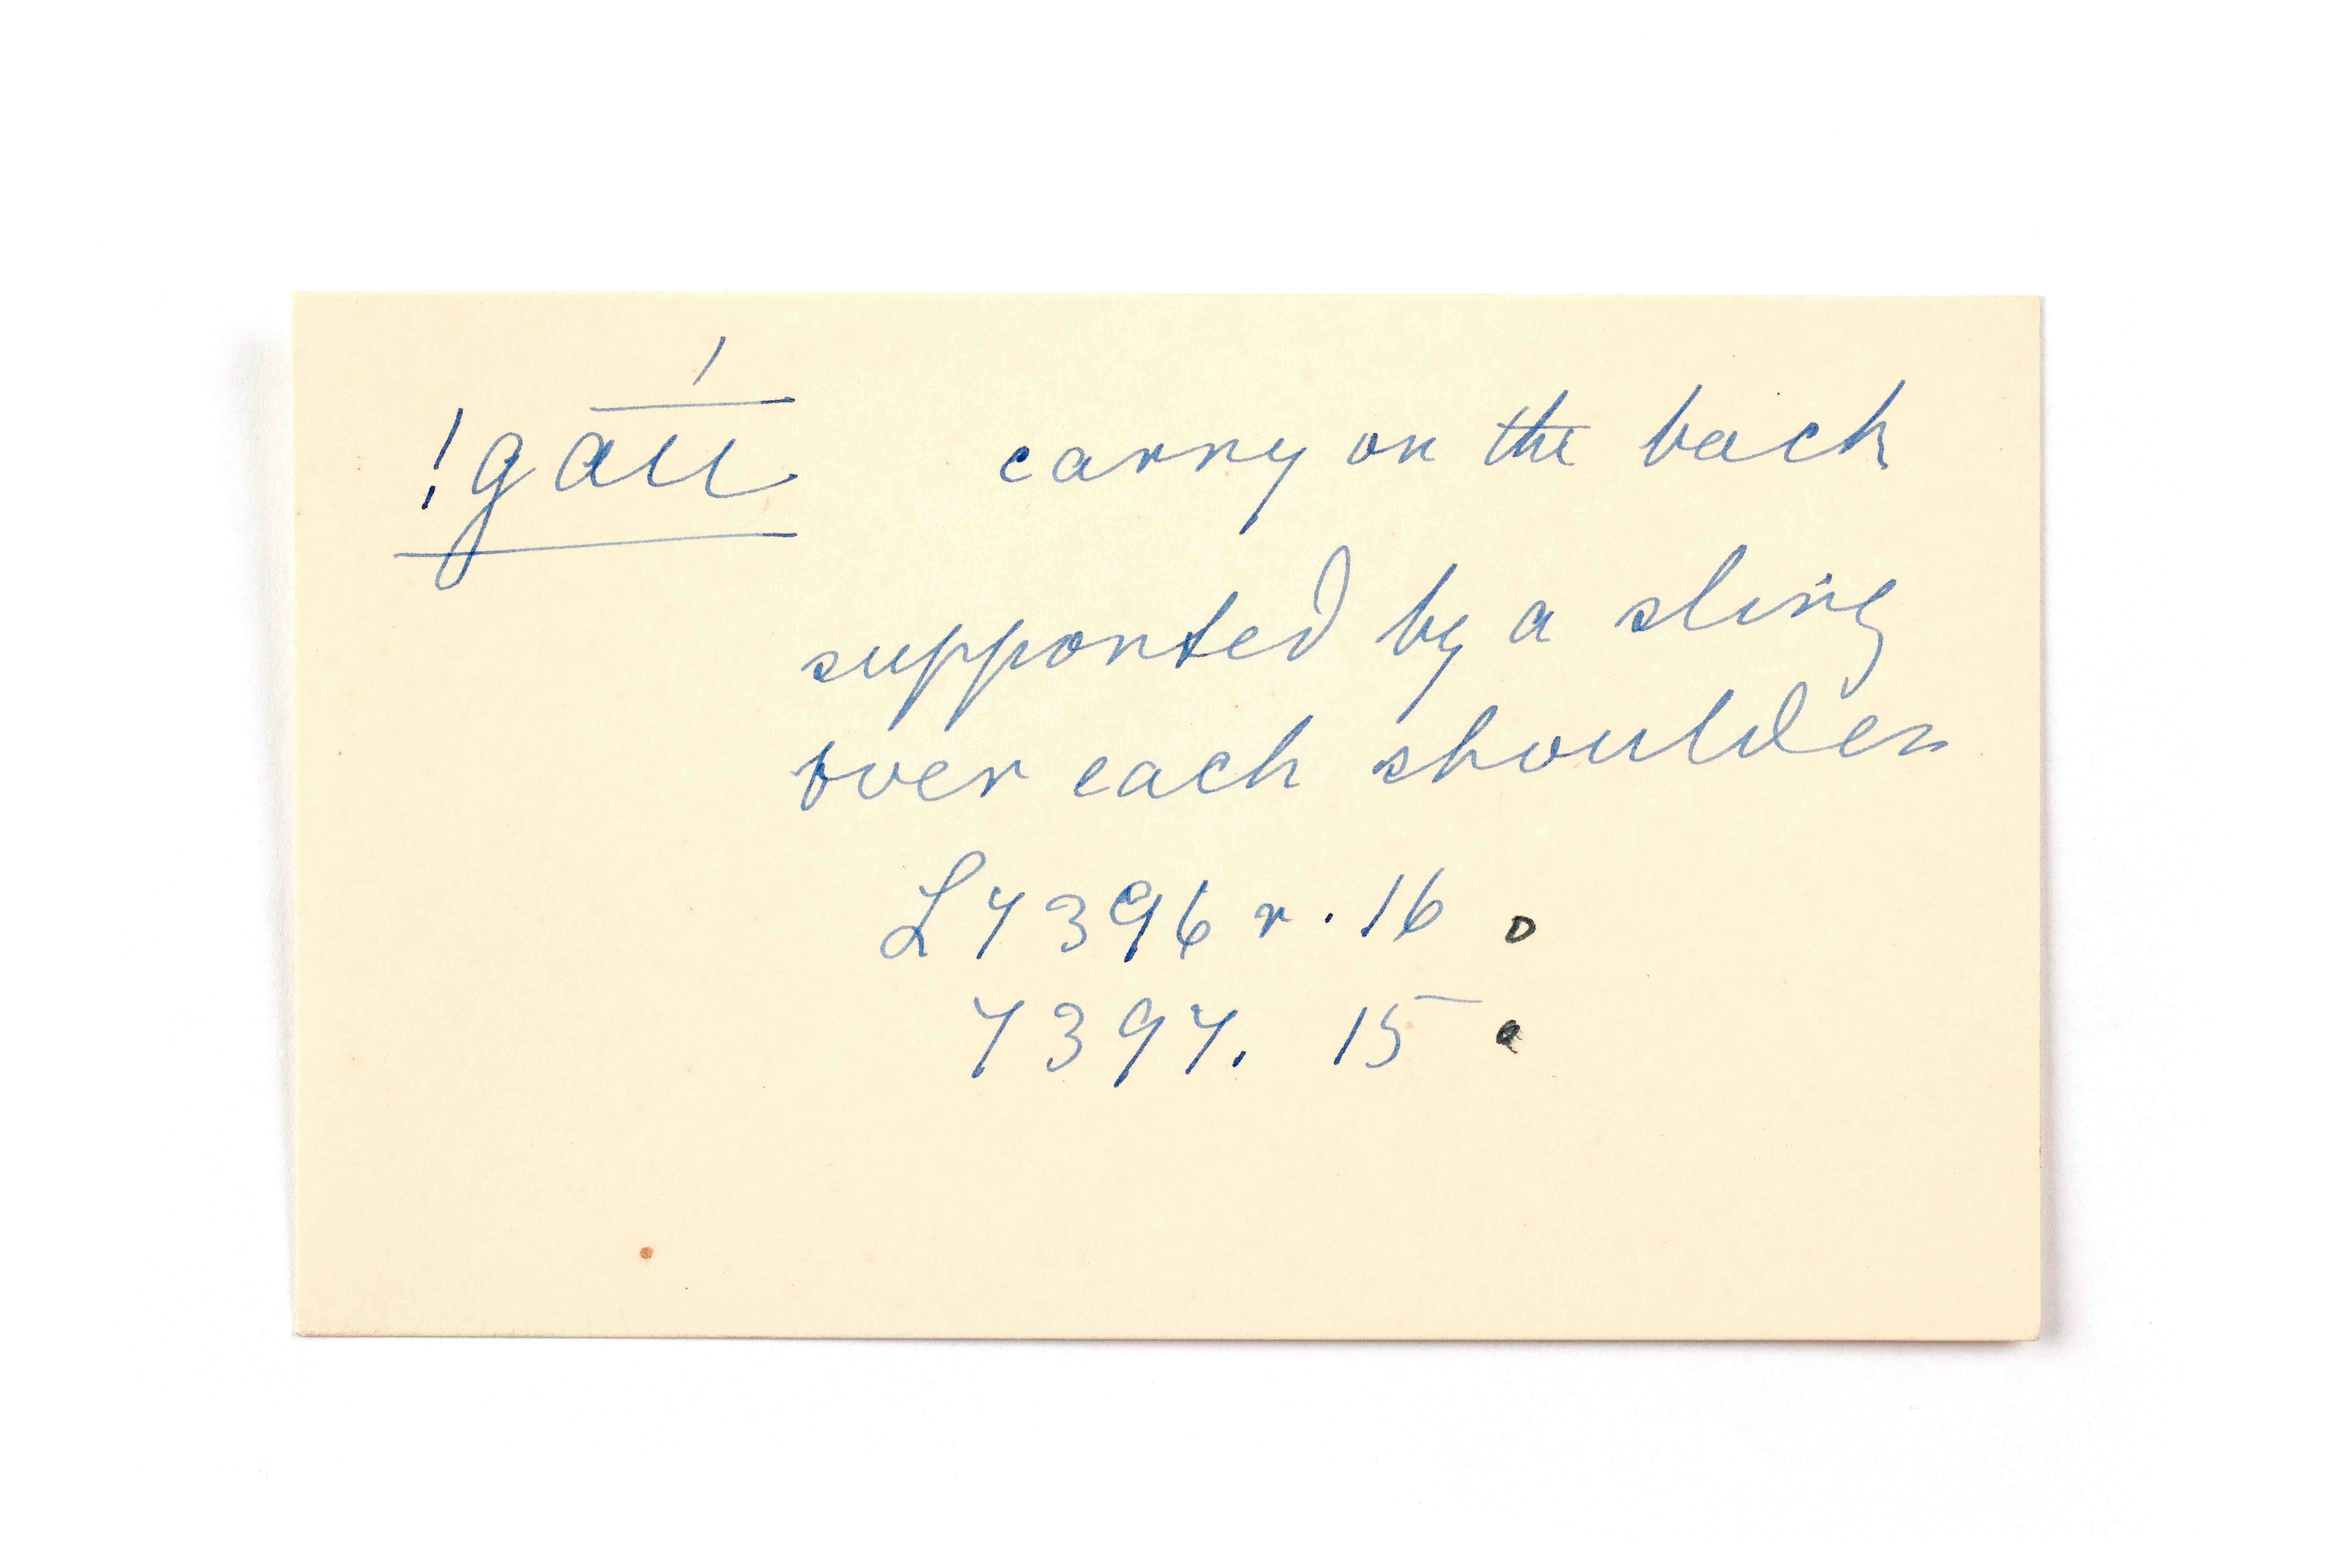 !gaūú carry on the back
supported by a sling
over each shoulder
L7396 r. 16 o
7397. 15